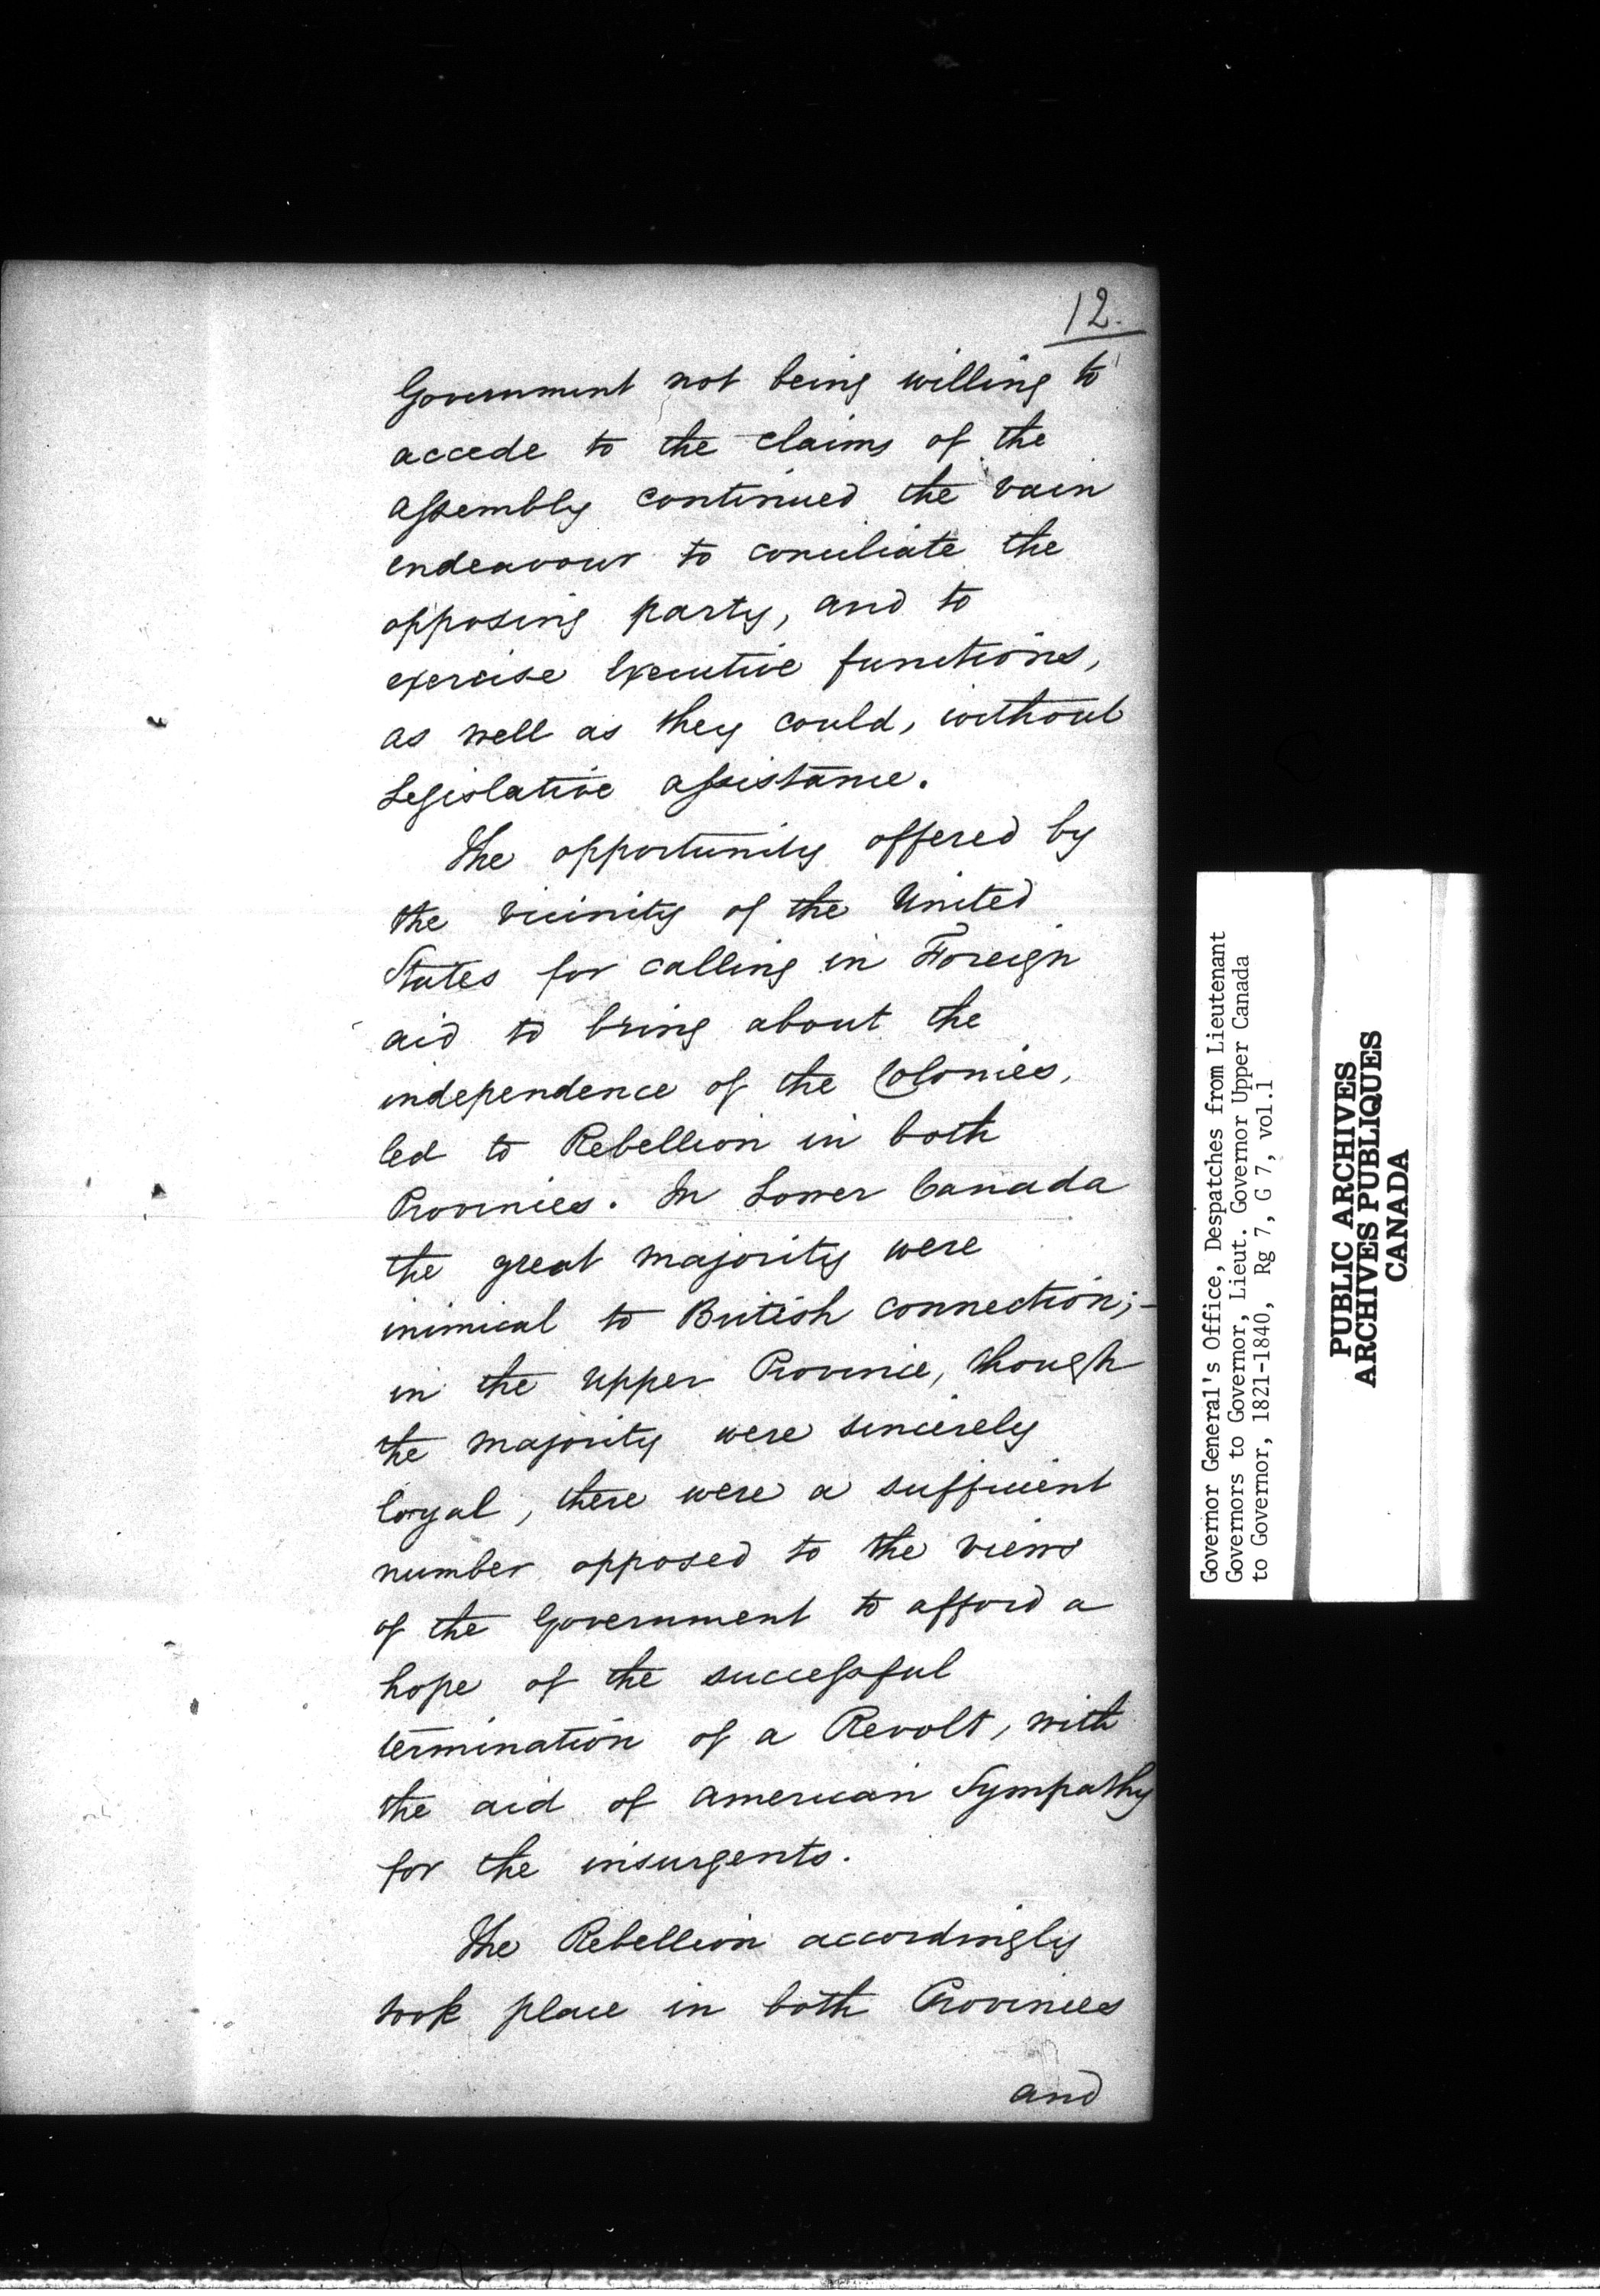 12.
Government not being willing to
accede to the claims of the
Assembly continued the vain
endeavour to conciliate the
opposing party, and to
exercise Executive functions,
as well as they could, without
Legislative assistance.
The opportunity offered by
the vicinity of the United
States for calling in Foreign
aid to bring about the
independence of the Colonies,
led to Rebellion in both
Provinces. In Lower Canada
the great majority were
inimical to British connection;-
in the Upper Province, though
the majority were sincerely
loyal, there were a sufficient
number opposed to the views
of the Government to afford a
hope of the successful
termination of a Revolt, with
the aid of American Sympathy
for the insurgents.
The Rebellion accordingly
took place in both Provinces
and
Governor General's Office, Despatches from Lieutenant
Governors to Governor, Lieut. Governor Upper Canada
to Governor, 1821-1840, Rg 7, G 7, vol.1
PUBLIC ARCHIVES
ARCHIVES PUBLIQUES
CANADA